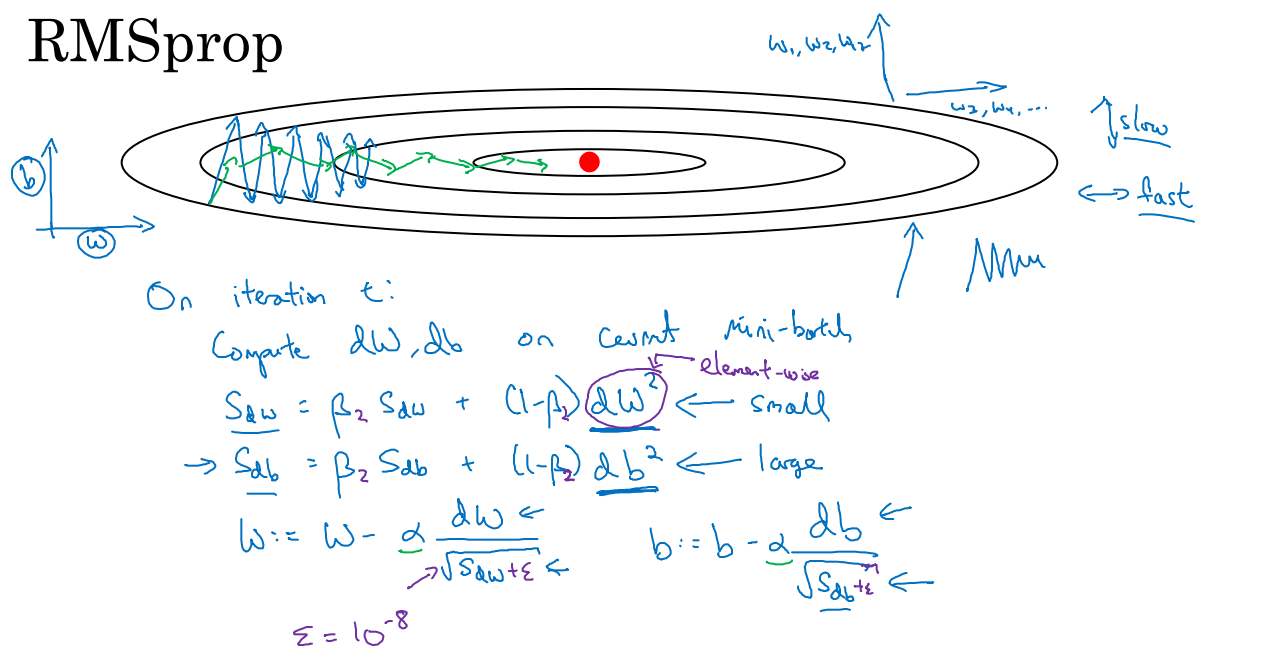 RMSprop
w₁, w₂, w₁₂
w₃, w₄, ...
slow
fast
b
w
On iteration t:
Compute dW, db on current mini-batch
element-wise
S_dw = β₂ S_dw + (1-β₂) dW² ← small
→ S_db = β₂ S_db + (1-β₂) db² ← large
W := W - α dW / √(S_dw + ε) ←
b := b - α db / √(S_db + ε) ←
ε = 10⁻⁸